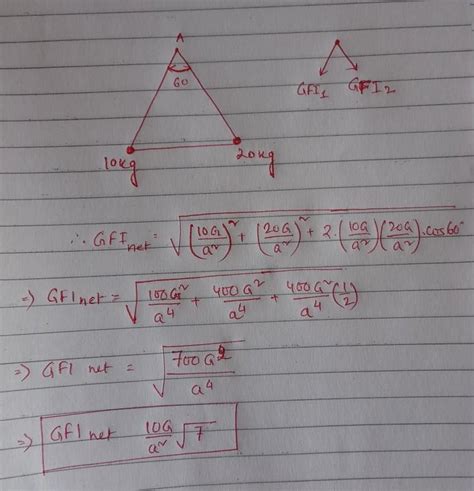 A
60
GFI₁ GFI₂
10kg 20kg
∴ GFI net = √(10G/a²)² + (20G/a²)² + 2.(10G/a²)(20G/a²).cos60°
=> GFI net = √100G²/a⁴ + 400G²/a⁴ + 400G²/a⁴(1/2)
=> GFI net = √700G²/a⁴
=> GFI net 10G/a² √7